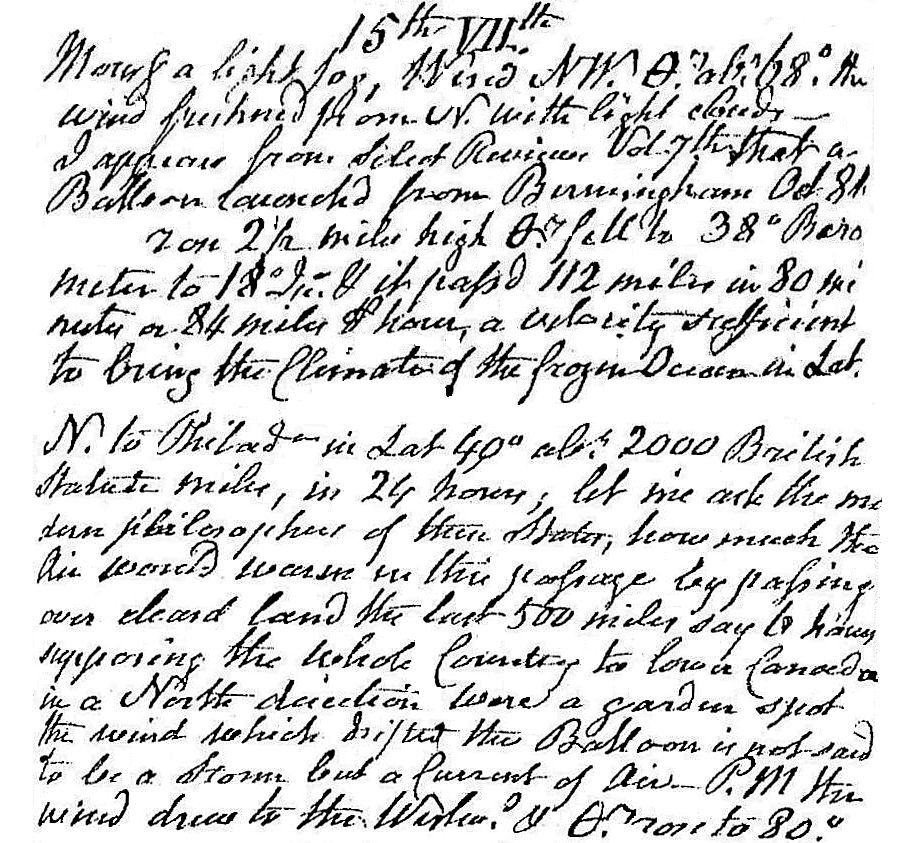 15th VIIth
Morng a light fog, Wind NW. Θ.r abt. 68.° the
wind freshned from N. with light clouds—
I appears from Select Reviews Vol. 7th that a
Balloon launchd from Birmingham Oct. 8th
rose 2½ miles high Θ.r fell to 38° Baro
meter to 18° & it passd 112 miles in 80 mi
nutes or 84 miles ⅌ hour, a velocity sufficient
to bring the Climate of the frozen Ocean in Lat.
N. to Philad in Lat 40° abt. 2000 British
Statute miles, in 24 hours; let me ask the mo
dern philosophers of these States, how much the
Air would warm in this passage by passing
over cleard land the last 500 miles say 6 hours
supposing the whole Country to lower Canada
in a North direction were a garden spot
the wind which drifted the Balloon is not said
to be a Storm but a Current of Air— P.M the
wind drew to the Westwd. & Θ.r rose to 80.°